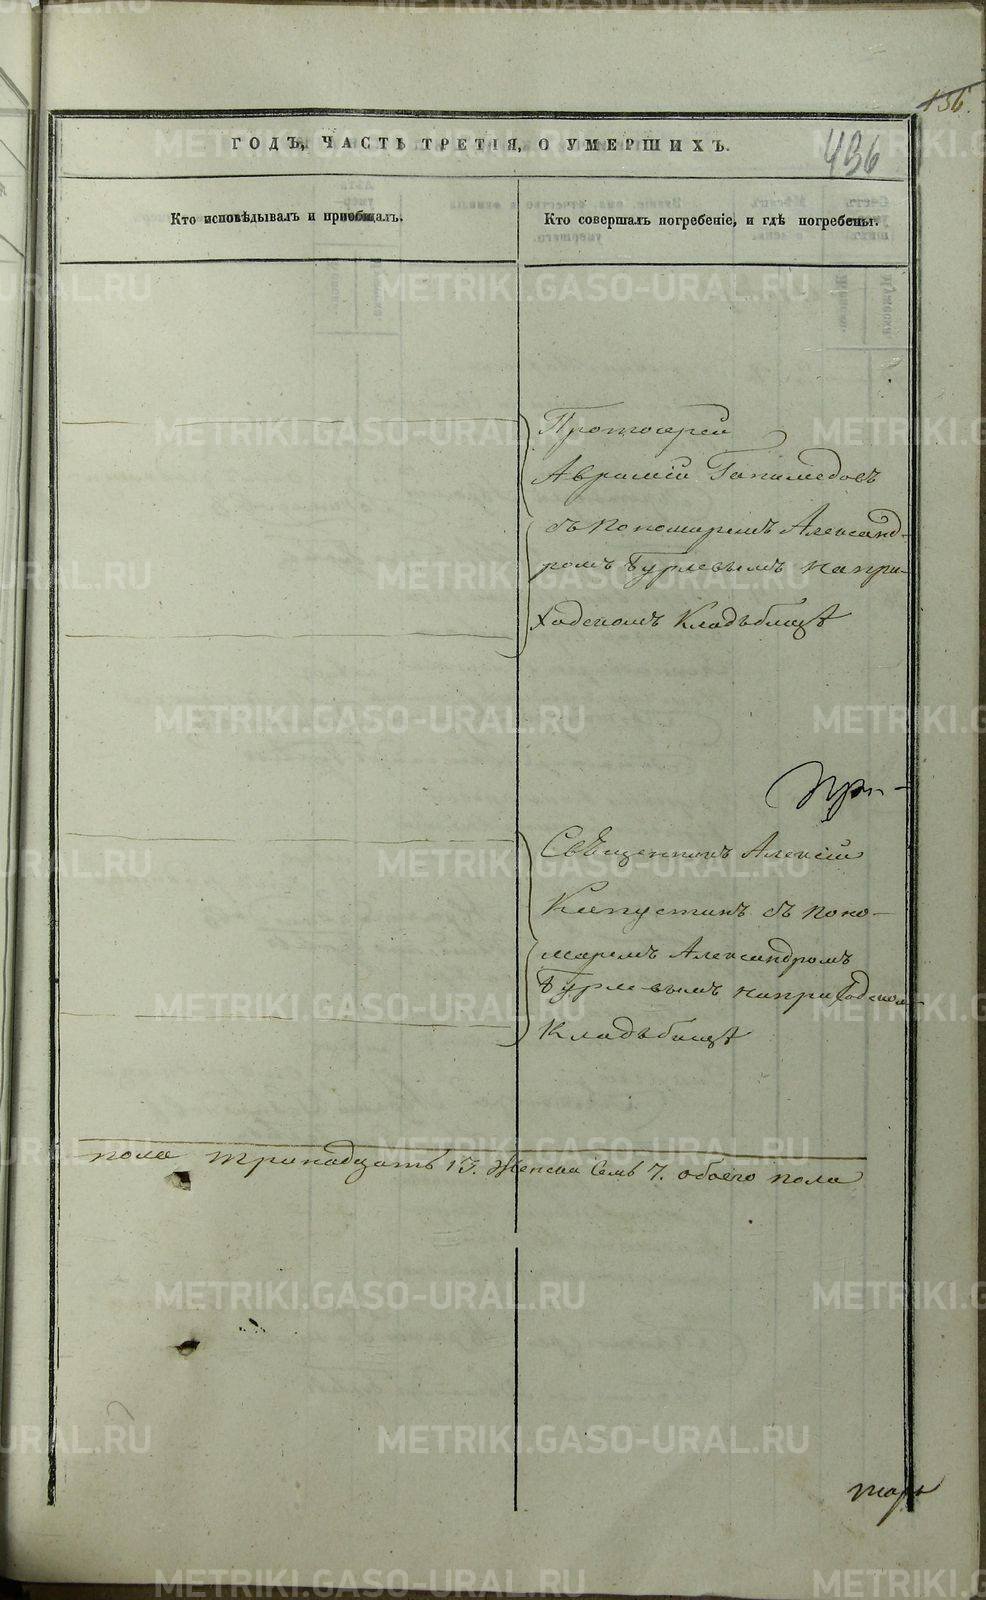 156.
436
ГОДЪ, ЧАСТЬ ТРЕТІЯ, О УМЕРШИХЪ.
Кто исповѣдывалъ и пріобщалъ.
Кто совершалъ погребеніе, и гдѣ погребены.
Протоіерей
Аврамій Ганимедовъ
съ пономаремъ Александ-
ромъ Бурлевымъ наприходскомъ Кладбищѣ
При-
Священникъ Алексій
Капустинъ съ поно-
маремъ Александромъ
Бурлевымъ наприходском
Кладбищѣ
пола тринадцать 13. Женска Семь 7. обоего пола
METRIKI.GASO-URAL.RU